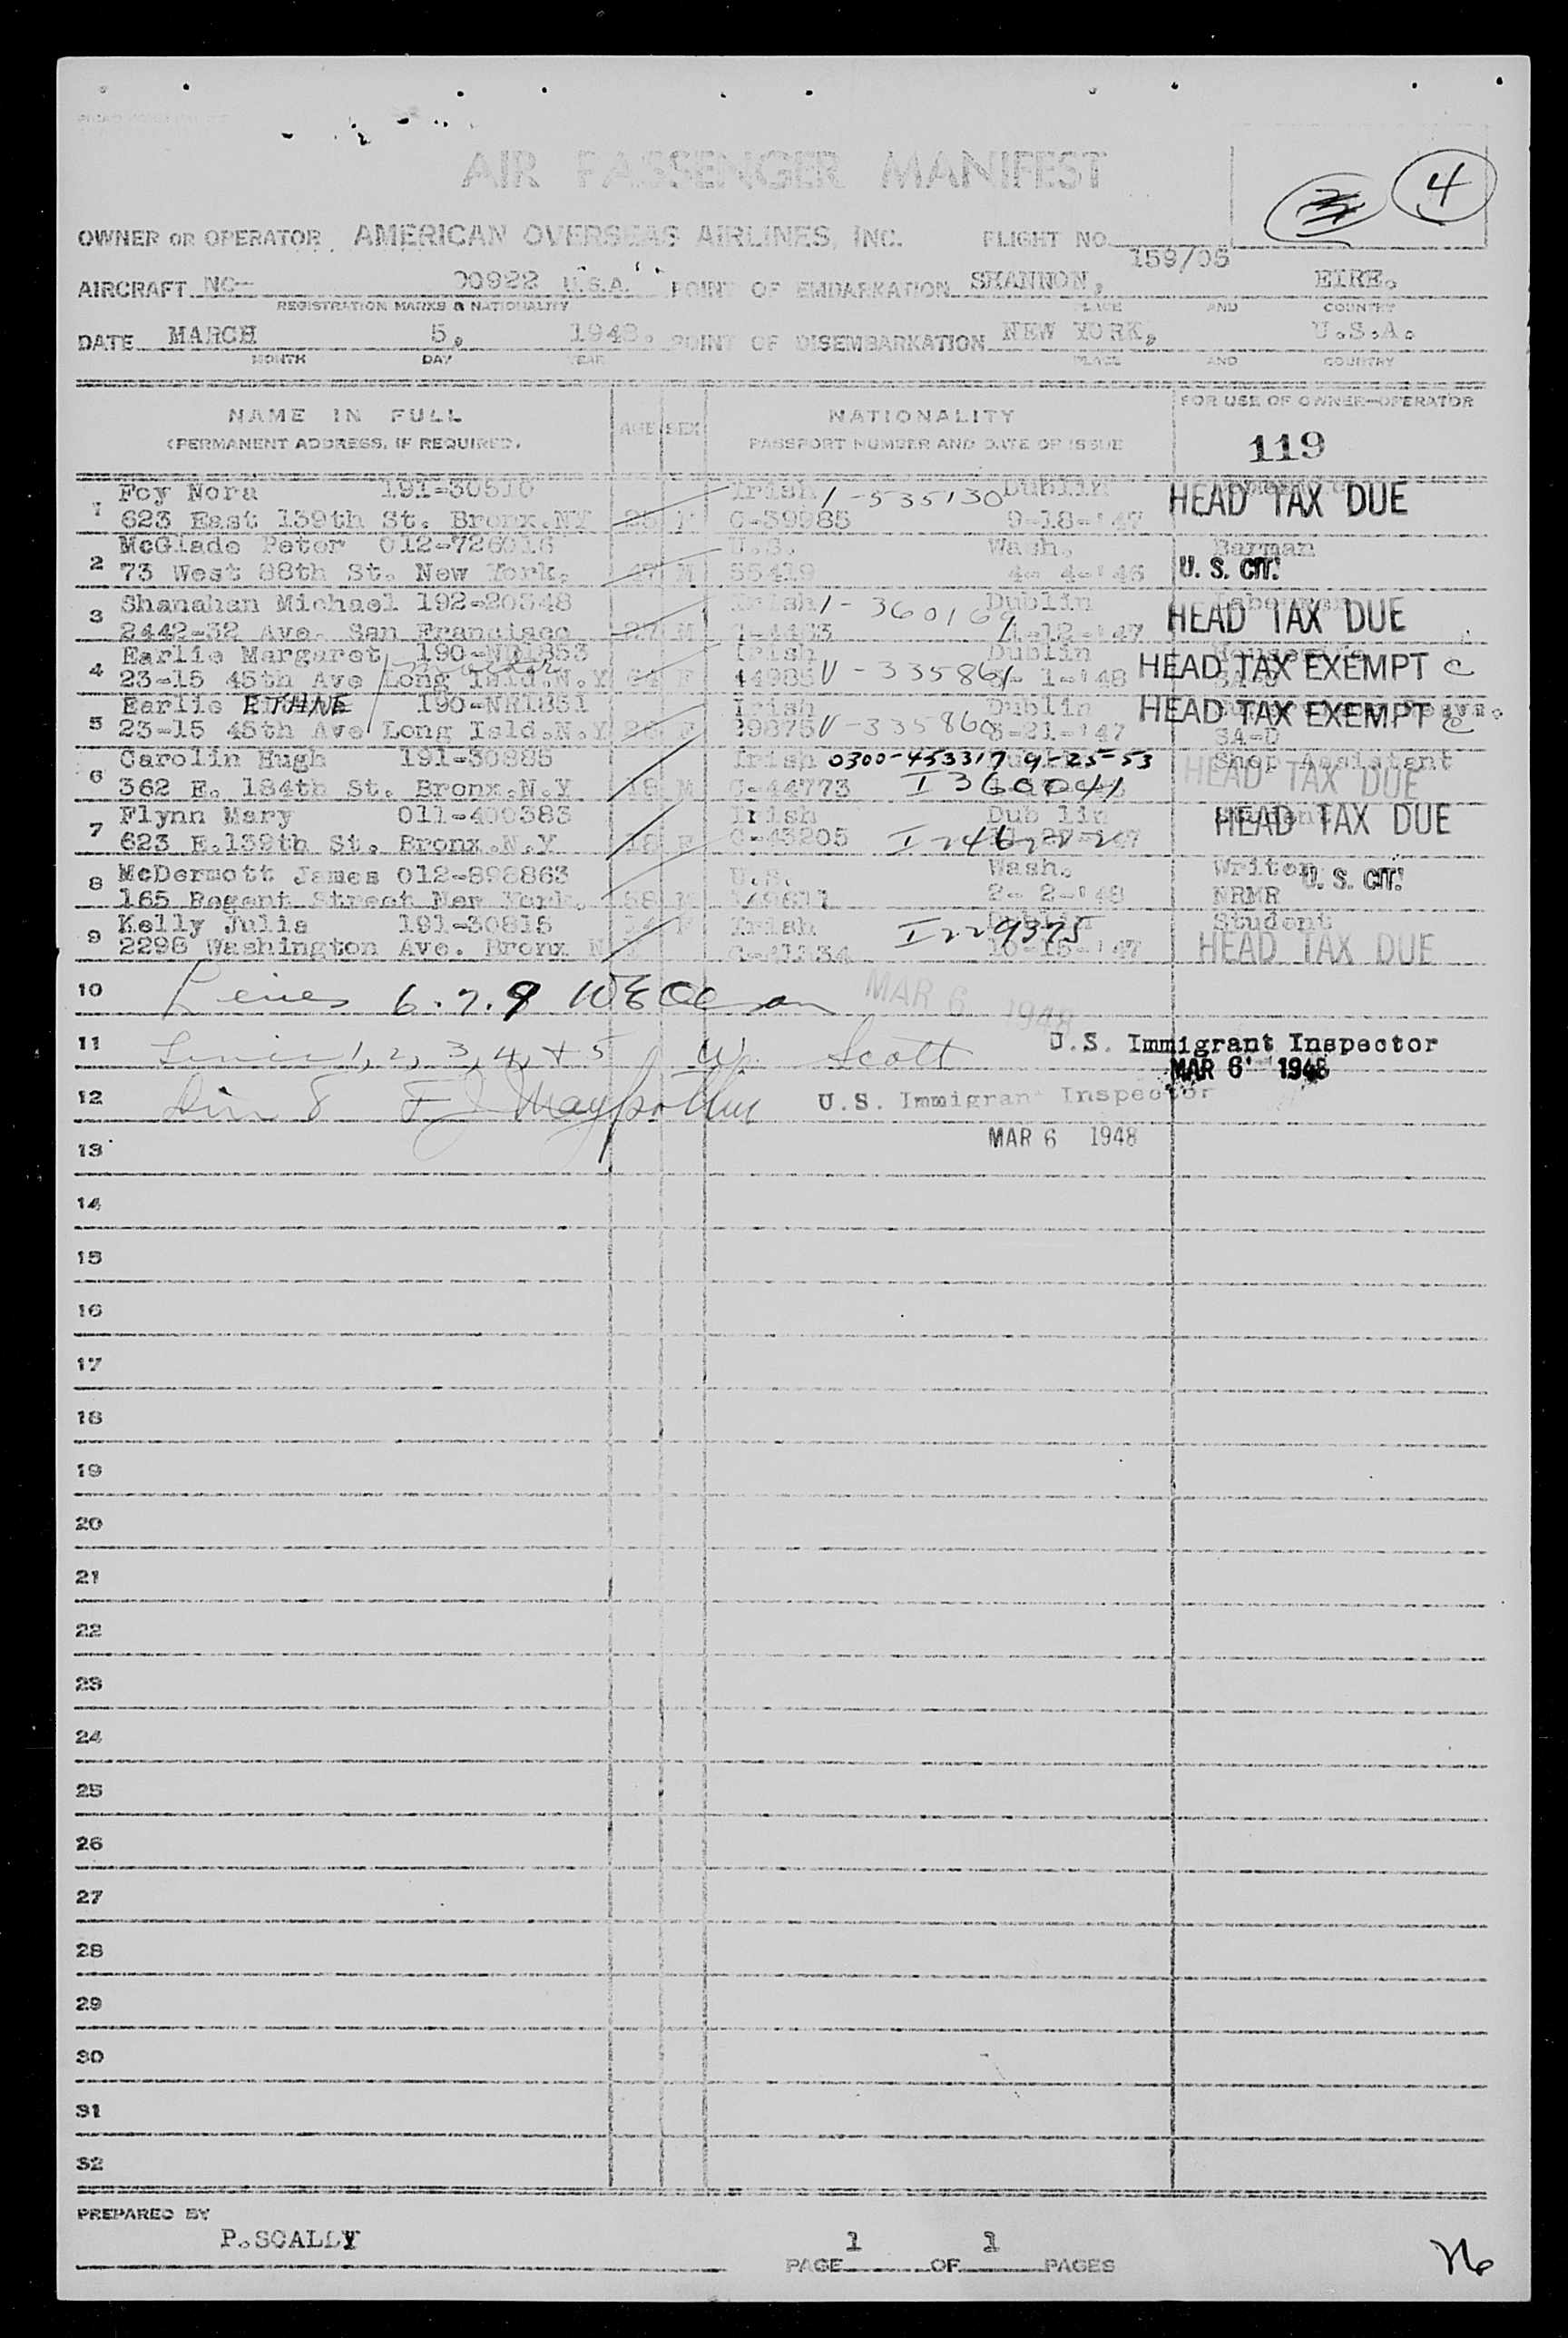 4
AIR PASSENGER MANIFEST
OWNER OR OPERATOR AMERICAN OVERSEAS AIRLINES, INC. FLIGHT NO. 159/05
AIRCRAFT NC- 00922 U.S.A. POINT OF EMBARKATION SHANNON, EIRE.
REGISTRATION MARKS & NATIONALITY PLACE AND COUNTRY
DATE MARCH 5, 1948. POINT OF DISEMBARKATION NEW YORK, U.S.A.
MONTH DAY YEAR PLACE AND COUNTRY
NAME IN FULL AGE SEX NATIONALITY FOR USE OF OWNER-OPERATOR
(PERMANENT ADDRESS, IF REQUIRED. PASSPORT NUMBER AND DATE OF ISSUE 119
1 Foy Nora 191-30510 Irish 1-535130 Dublin HEAD TAX DUE
623 East 139th St. Bronx.NY F C-39985 9-18-'47
2 McGlade Peter 012-726018 U.S. Wash. Barman
73 West 88th St. New York. 47 M 55419 4- 4-'46 U. S. CIT.
3 Shanahan Michael 192-20348 Irish 1-360169 Dublin HEAD TAX DUE
2442-32 Ave. San Francisco 27 M 12-'47
4 Earlie Margaret 190-NR1853 Irish Dublin
23-15 45th Ave Long Isld.N.Y F 44985 V-335861 1-'48 HEAD TAX EXEMPT C
5 Earlie 190-NR1851 Irish Dublin HEAD TAX EXEMPT C
23-15 45th Ave Long Isld.N.Y F 29875 V-335860 -21-'47 SA-D
6 Carolin Hugh 191-30885 Irish 0300-453317 9-25-53 Shop Assistant
362 E. 184th St. Bronx.N.Y 18 M C-44773 I 360041 HEAD TAX DUE
7 Flynn Mary 011-400383 Irish Dub lin Student HEAD TAX DUE
623 E.139th St. Bronx.N.Y 18 F C-43205
8 McDermott James 012-898863 U.S. Wash. Writer U. S. CIT.
165 Regent Street New York. 58 M 2- 2-'48 NRMR
9 Kelly Julia 191-30815 14 F Irish I229375 Dublin Student
2298 Washington Ave. Bronx N 10-15-'47 HEAD TAX DUE
10 Lines 6.7.9 MAR 6 1948
11 Lines 1, 2, 3, 4, + 5 W. Scott U.S. Immigrant Inspector
MAR 6 1948
12 Line 8 U.S. Immigrant Inspector
13 MAR 6 1948
14
15
16
17
18
19
20
21
22
23
24
25
26
27
28
29
30
31
32
PREPARED BY
P.SCALLY 1 1
PAGE OF PAGES